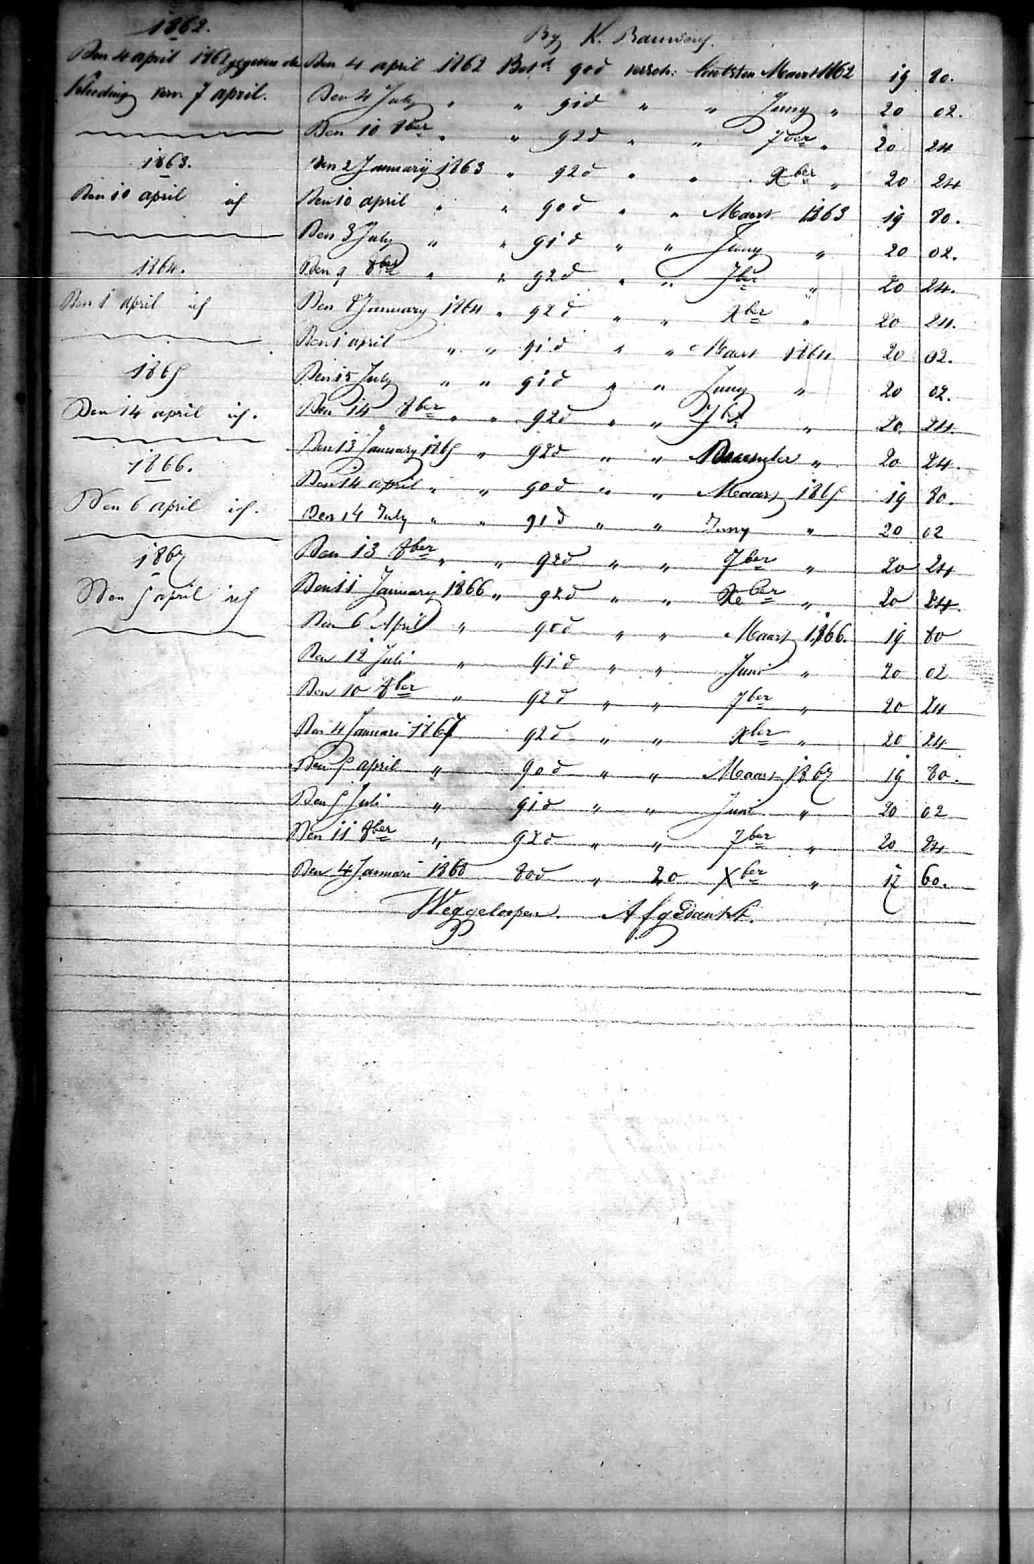 1862.
By K. Barends.
Den 4 april 1862 gegeven de
Kleeding voor 7 april.
1863.
Den 10 april id
1864.
Den 1 april id
1865
Den 14 april id.
1866.
Den 6 april id.
1867
Den 5 april id
Den 4 april 1862 Betd 90d versch: laatsten Maart 1862 19 80.
Den 4 July " " 91d " " Juny " 20 02.
Den 10 8ber " " 92d " " 7ber " 20 24
Den 2 January 1863 " 92d " " Xber " 20 24
Den 10 april " " 90d " " Maart 1863 19 80.
Den 3 July " " 91d " " Juny " 20 02.
Den 9 8ber " " 92d " " 7ber " 20 24.
Den 8 January 1864 " 92d " " Xber " 20 24.
Den 1 april " " 91d " " Maart 1864 20 02.
Den 15 July " " 91d " " Juny " 20 02.
Den 14 8ber " " 92d " " 7ber " 20 24.
Den 13 January 1865 " 92d " " December " 20 24.
Den 14 april " " 90d " " Maart 1865 19 80.
Den 14 July " " 91d " " Juny " 20 02
Den 13 8ber " " 92d " " 7ber " 20 24
Den 11 January 1866 " 92d " " Xber " 20 24.
Den 6 April " 90d " " Maart 1866. 19 80
Den 12 Juli " 91d " " Juni " 20 02
Den 10 8ber " 92d " " 7ber " 20 24
Den 4 Januari 1867 92d " " Xber " 20 24
Den 5 april " 90d " " Maart 1867 19 80.
Den 5 Juli " 91d " " Juni " 20 02
Den 11 8ber " 92d " " 7ber " 20 24
Den 4 Januari 1868 80d " 20 Xber " 17 60.
Weggeloopen. Afgedankt.